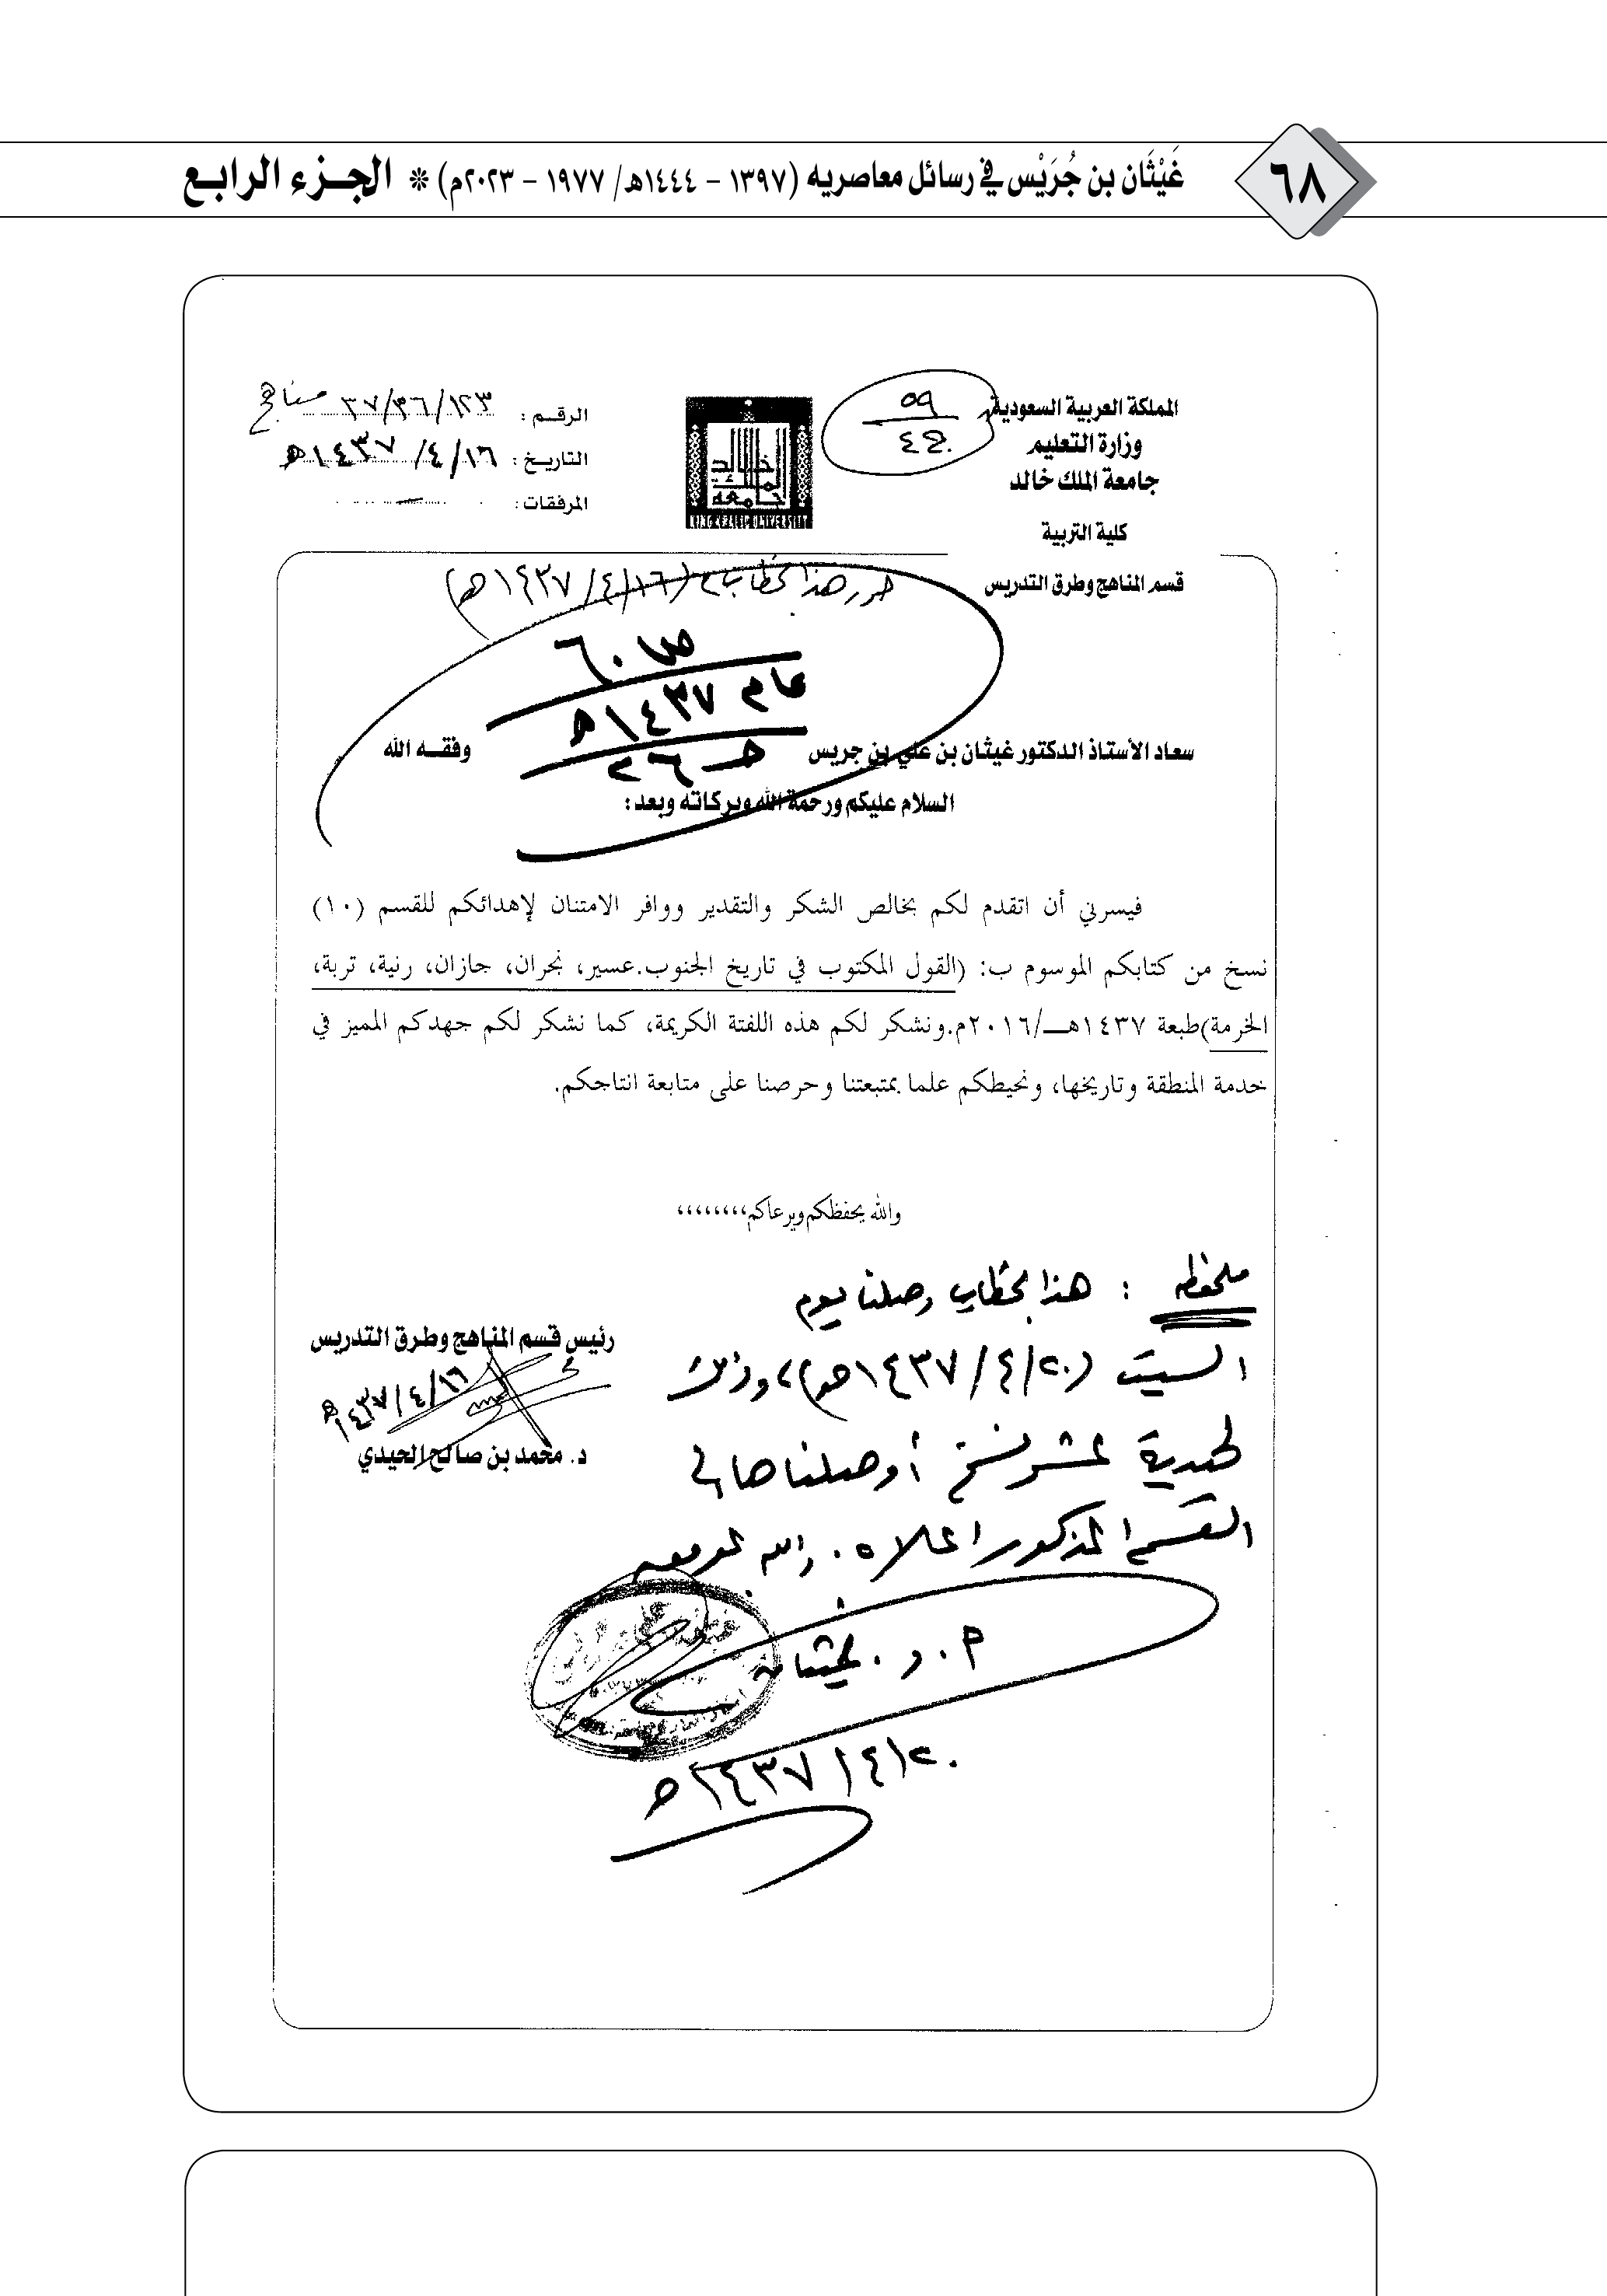 ٦٨
غَيْثَان بن جُرَيْس في رسائل معاصريه (١٣٩٧ - ١٤٤٤هـ/ ١٩٧٧ - ٢٠٢٣م) * الجزء الرابع
المملكة العربية السعودية
وزارة التعليم
جامعة الملك خالد
كلية التربية
قسم المناهج وطرق التدريس
٥٩
KING KHALID UNIVERSITY
الرقم : ٣٧/٣٦/١٢٣ مناهج
التاريخ : ١٤٣٧/٤/١٦هـ
المرفقات :
حرر هذا الخطاب في (١٤٣٧/٤/١٦هـ)
ص٦٠
عام ١٤٣٧هـ
سعاد الأستاذ الدكتور غيثان بن علي بن جريس وفقه الله
السلام عليكم ورحمة الله وبركاته وبعد:
فيسرني أن اتقدم لكم بخالص الشكر والتقدير ووافر الامتنان لإهدائكم للقسم (١٠)
نسخ من كتابكم الموسوم ب: (القول المكتوب في تاريخ الجنوب.عسير، نجران، جازان، رنية، تربة،
الخرمة)طبعة ١٤٣٧هـ/٢٠١٦م.ونشكر لكم هذه اللفتة الكريمة، كما نشكر لكم جهدكم المميز في
خدمة المنطقة وتاريخها، ونحيطكم علما بمتبعتنا وحرصنا على متابعة انتاجكم.
والله يحفظكم ويرعاكم،،،،،،،،
رئيس قسم المناهج وطرق التدريس
١٤٣٧/٤/١٦هـ
د. محمد بن صالح الحيدي
ملحظه : هذا الخطاب وصلنا يوم
السبت (١٤٣٧/٤/٢٠هـ)، وذلك
لهدية عشر نسخ أوصلناها إلى
القسم المذكور اعلاه. والله الموفق
م.د. غيثان
١٤٣٧/٤/٢٠هـ